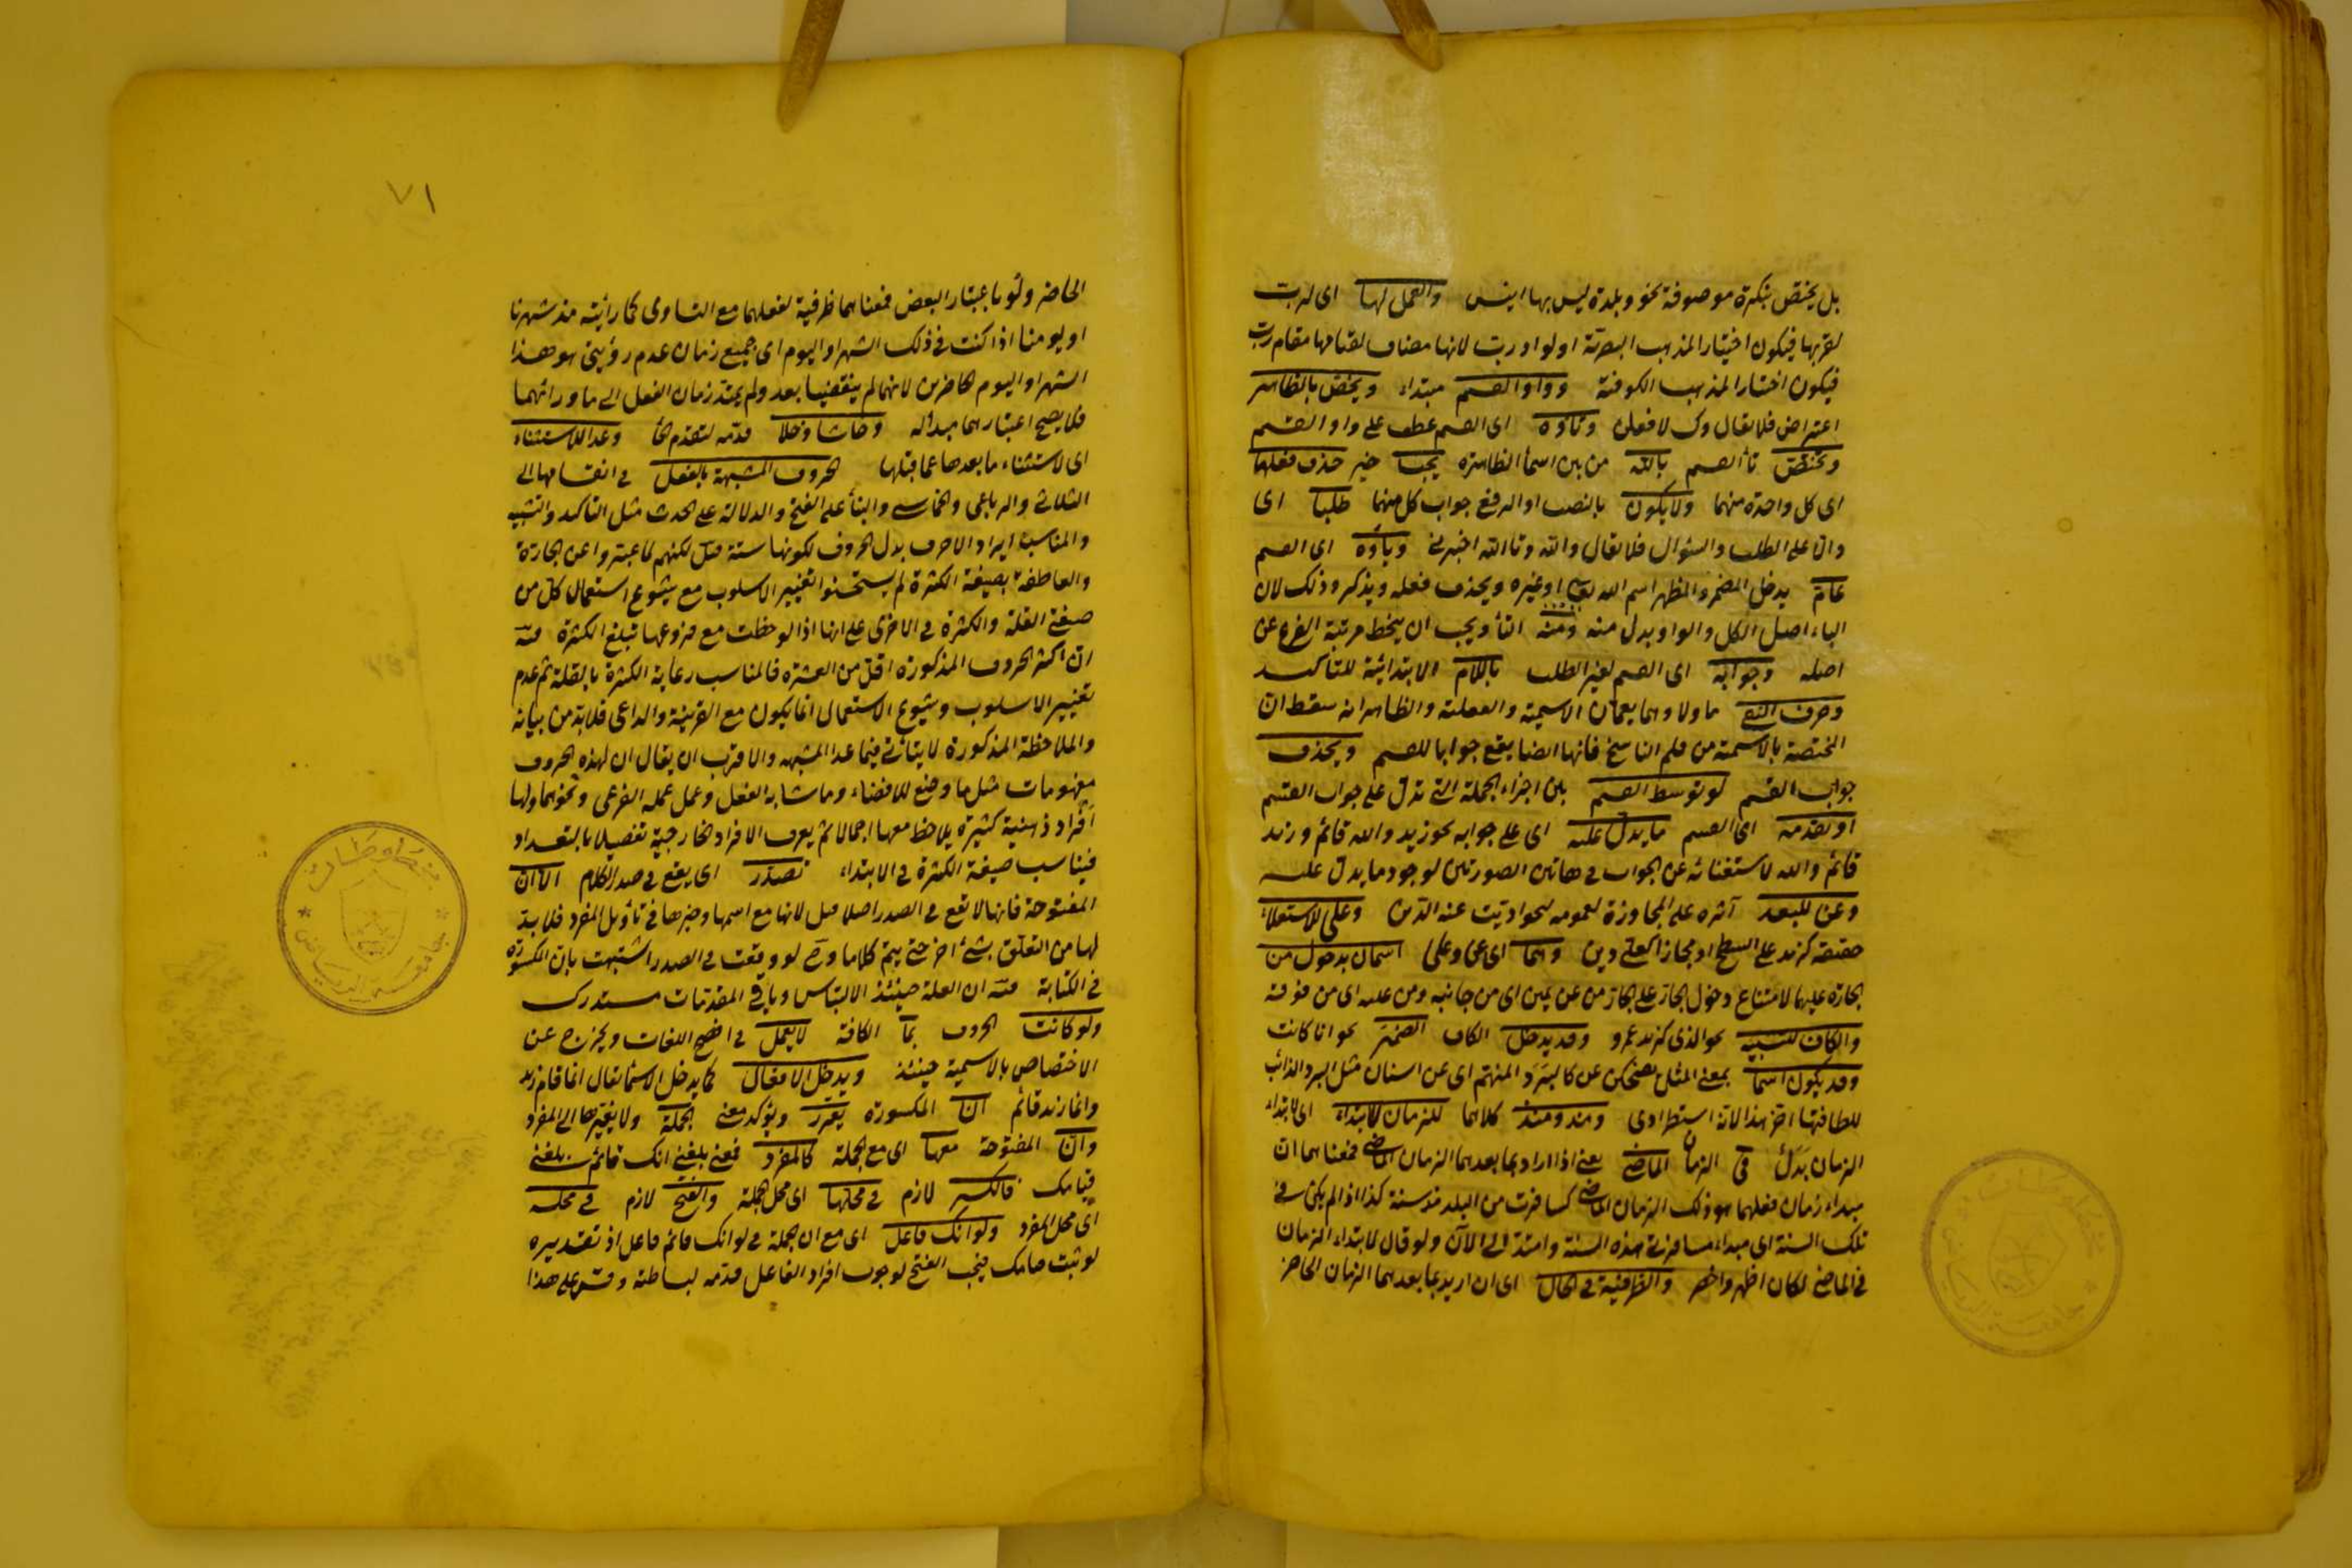 بل يختص بنكرة موصوفة نحو وبلدة ليس بها انيس والعمل لها اى لرب
لقربها فيكون اختيار المذهب البصرية او لواو رب لانها مضاف لقتامها مقام رب
فيكون اختيار المذهب الكوفية وواو القسم مبتداء ويختص بالظاهر
اعتراض فلا يقال وك لافعلن وتاؤه اى القسم عطف على واو القسم
وتختص تأ القسم بالله من بين اسمأ الظاهرة يجب خبر حذف فعلها
اى كل واحدة منهما ولا يكون بالنصب او الرفع جواب كل منهما طلبا اى
دالا على الطلب والسؤال فلا يقال والله وتالله اخبرنى وباؤه اى القسم
عام يدخل المضمر والمظهر اسم الله تعالى او غيره ويحذف فعله ويذكر وذلك لان
الباء اصل الكل والواو بدل منه ومنه التأ ويجب ان ينحط مرتبة الفرع عن
اصله وجوابه اى القسم لغير الطلب باللام الابتدائية للتأكيد
وحرف النفى ما ولا وهما يعمان الاسمية والفعلية والظاهر انه سقط ان
المختصة بالاسمية من قلم الناسخ فانها ايضا يقع جوابا للقسم ويحذف
جواب القسم لو توسط القسم بين اجزاء الجملة التى تدل على جواب القسم
او تقدمه اى القسم ما يدل عليه اى على جوابه نحو زيد والله قائم وزيد
قائم والله لاستغنائه عن الجواب فى هاتين الصورتين لوجود ما يدل عليه
وعن للبعد آثره على المجاوزة لعمومه نحو اديت عنه الدين وعلى للاستعلاء
حقيقة كزيد على السطح او مجازا كعلى دين وهما اى عن وعلى اسمان بدخول من
الجارة عليهما لامتناع دخول الجار على الجار من عن يمين اى من جانبه ومن عليه اى من فوقه
والكاف للتشبيه نحو الذى كزيد عمرو وقد يدخل الكاف الضمير نحو انا كانت
وقد يكون اسما بمعنى المثل يضحكن عن كالبرد المنهم اى عن اسنان مثل البرد الذائب
للطافتها اخر هذا لانه استطرادى ومذ ومنذ كلاهما للزمان للابتداء اى لابتداء
الزمان بدل فى الزمان الماضى يعنى اذا اراد بما بعدهما الزمان الماضى فمعناهما ان
مبداء زمان فعلهما هو ذلك الزمان الماضى كسافرت من البلد مذ سنة كذا اذا لم يكن فى
تلك السنة اى مبداء مسافرتى هذه السنة وامتد الى الآن ولو قال لابتداء الزمان
فى الماضى لكان اظهر واخصر والظرفية فى الحال اى ان اريد بما بعدهما الزمان الحاضر
٧١
الحاضر ولو باعتبار البعض فمعناهما ظرفية لفعلهما مع التساوى كما رأيته مذ شهرنا
او يومنا اذا كنت فى ذلك الشهر او اليوم اى جميع زمان عدم رؤيتى هو هذا
الشهر او اليوم الحاضرين لانهما لم ينقضيا بعد ولم يمتد زمان الفعل الى ما ورائهما
فلا يصح اعتبارهما مبدأ له وحاشا وخلا قدمه لتقدم الخأ وعدا للاستثناء
اى لاستثناء ما بعدها عما قبلها الحروف المشبهة بالفعل فى انقسامها الى
الثلاثى والرباعى والخماسى والبنأ على الفتح والدلالة على الحدث مثل التأكيد والتشبيه
والمناسب ايراد الاحرف بدل الحروف لكونها ستة قيل لكنهم لما عبروا عن الجارة
والعاطفة بصيغة الكثرة لم يستحسنوا تغيير الاسلوب مع شيوع استعمال كل من
صيغتى القلة والكثرة فى الاخرى على انها اذا لوحظت مع فروعها تبلغ الكثرة فيه
ان اكثر الحروف المذكورة اقل من العشرة فالمناسب رعاية الكثرة بالقلة ثم عدم
تغيير الاسلوب وشيوع الاستعمال انما يكون مع القرينة والداعى فلا بد من بيانه
والملاحظة المذكورة لا يتأتى فيما عدا المشبهه والاقرب ان يقال ان لهذه الحروف
مفهومات مثل ما وضع للافضاء وما شابه الفعل وعمل عمله الفرعى ونحوهما ولها
افراد ذهنية كثيرة يلاحظ معها اجمالا ثم يعرف الافراد الخارجية تفصيلا بالتعداد
فيناسب صيغة الكثرة فى الابتداء تصدر اى يقع فى صدر الكلام الا ان
المفتوحة فانها لا تقع فى الصدر اصلا قيل لانها مع اسمها وخبرها فى تأويل المفرد فلا بد
لها من التعلق بشئ اخر حتى يتم كلاما وح لو وقعت فى الصدر اشتبهت بان المكسورة
فى الكتابة فيه ان العلة حينئذ الالتباس وباقى المقدمات مستدرك
ولو كانت الحروف بما الكافة لا يعمل فى افصح اللغات ويخرج عن
الاختصاص بالاسمية حينئذ ويدخل الافعال كما يدخل الاسمأ يقال انما قام زيد
وانما زيد قائم ان المكسورة يقرر ويؤكد معنى الجملة ولا يغيرها الى المفرد
وان المفتوحة معها اى مع الجملة كالمفرد فمعنى بلغنى انك قائم بلغنى
قيامك فالكسر لازم فى محلها اى محل الجملة والفتح لازم فى محله
اى محل المفرد ولو انك فاعل اى مع ان جملة فى لو انك قائم فاعل اذ تقديره
لو ثبت قيامك فيجب الفتح لوجوب افراد الفاعل قدمه لبساطته وقس على هذا
مخطوطات
جامعة الرياض